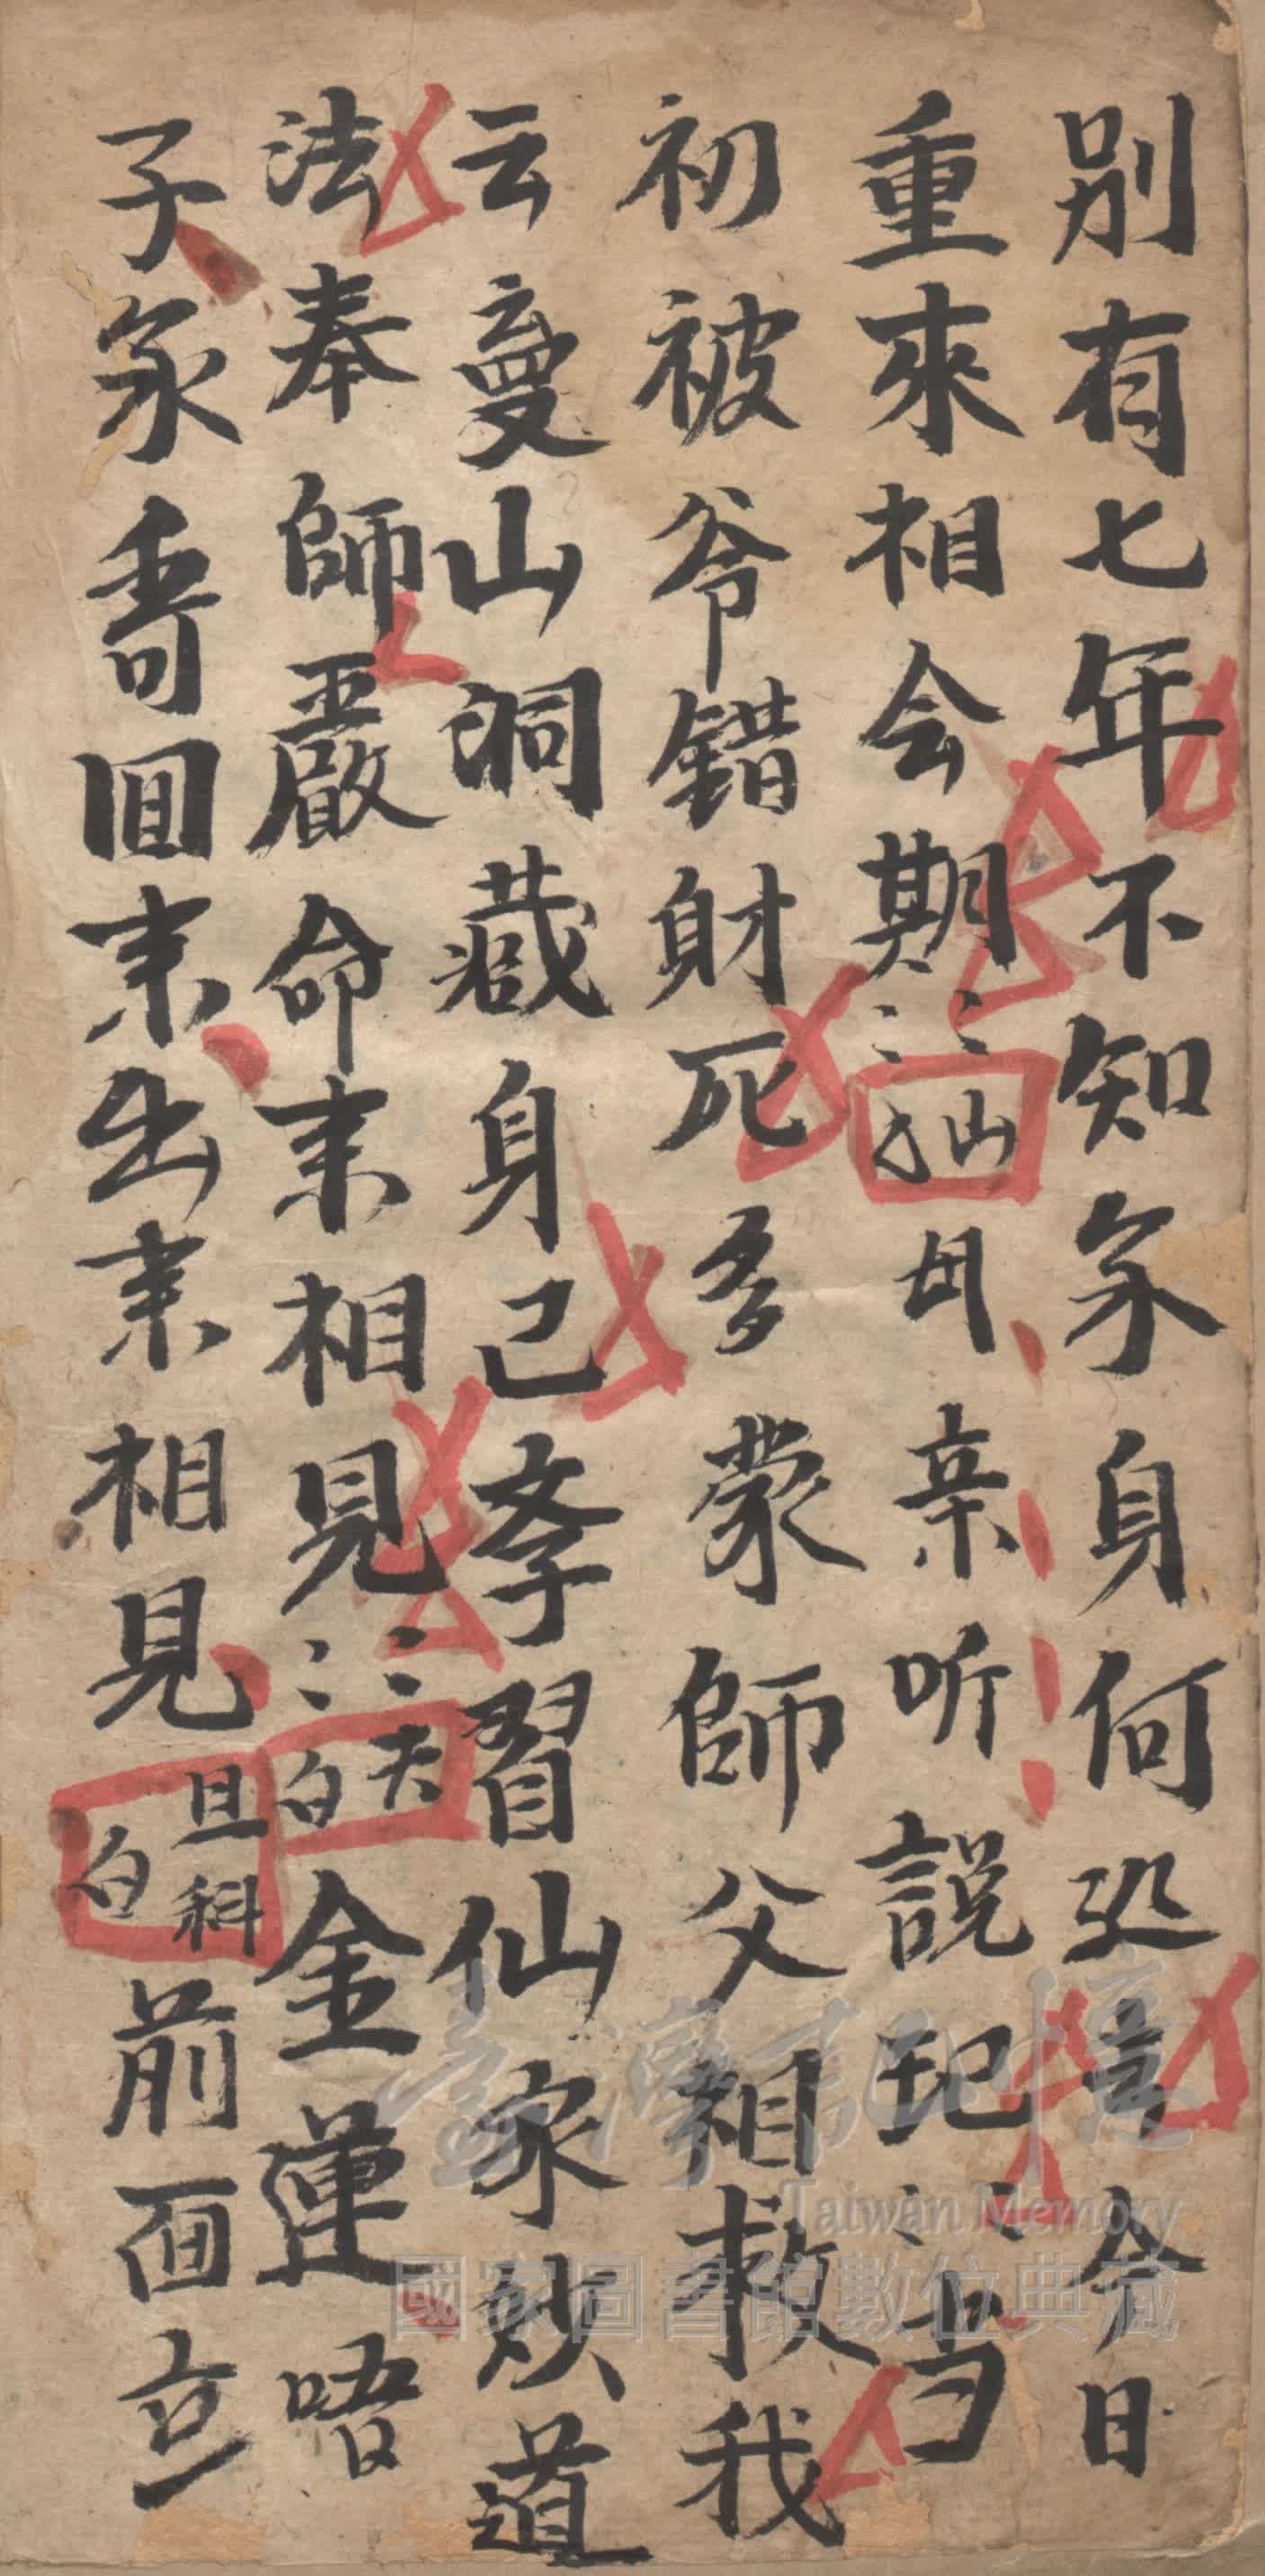 别有七年不知家身何処[⿱]今日
重來相会期〻〻仙才母亲听説記〻〻当
初被爷錯財死多蒙師父相救我
云夢山洞藏身己孝習仙家妙道
法奉師嚴命來相見〻〻夫白金蓮唔
子家哥回來出來相見旦科白前面立
臺灣記憶
Taiwan Memory
國家圖書館數位典藏